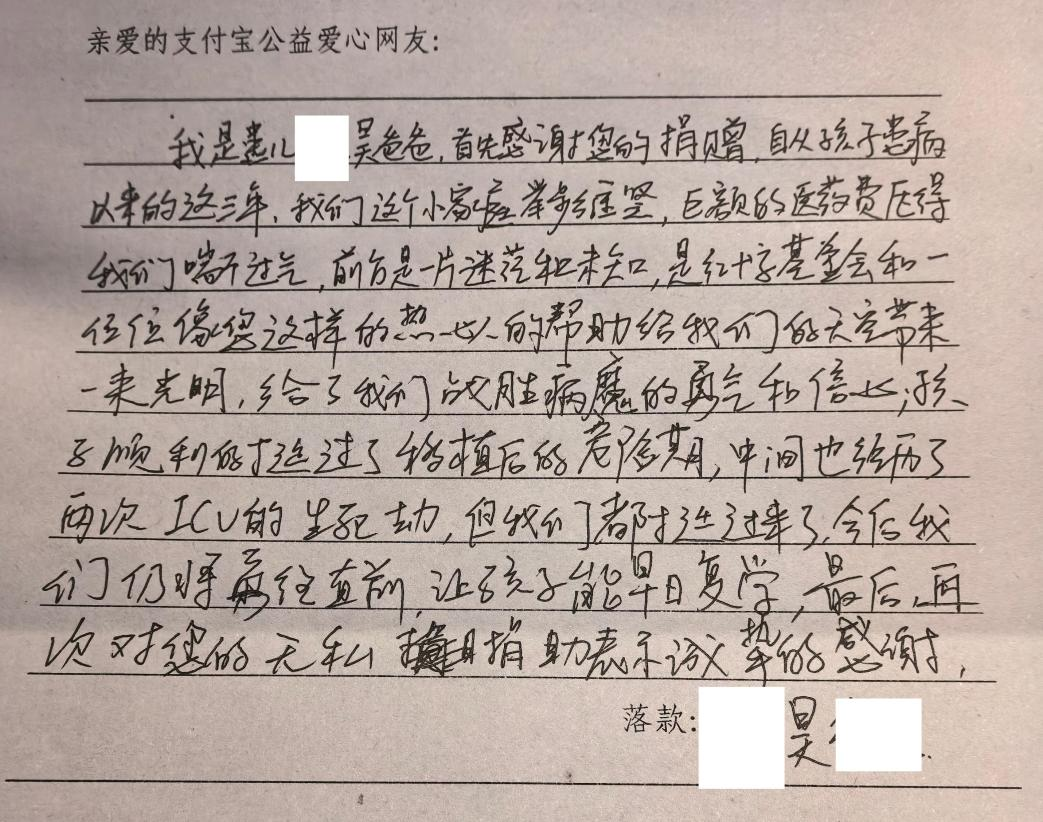 亲爱的支付宝公益爱心网友:
我是患儿 昊爸爸,首先感谢您的捐赠,自从孩子患病
以来的这三年,我们这个小家庭举步维坚,巨额的医药费压得
我们喘不过气,前方是一片迷茫和未知,是红十字基金会和一
位位像您这样的热心人的帮助给我们的天空带来
一束光明,给了我们战胜病魔的勇气和信心;孩
子顺利的挺过了移植后的危险期,中间也经历了
两次ICU的生死劫,但我们都挺过来了,今后我
们仍将勇往直前,让孩子能早日复学,最后,再
次对您的无私捐助表示诚挚的感谢,
落款: 昊